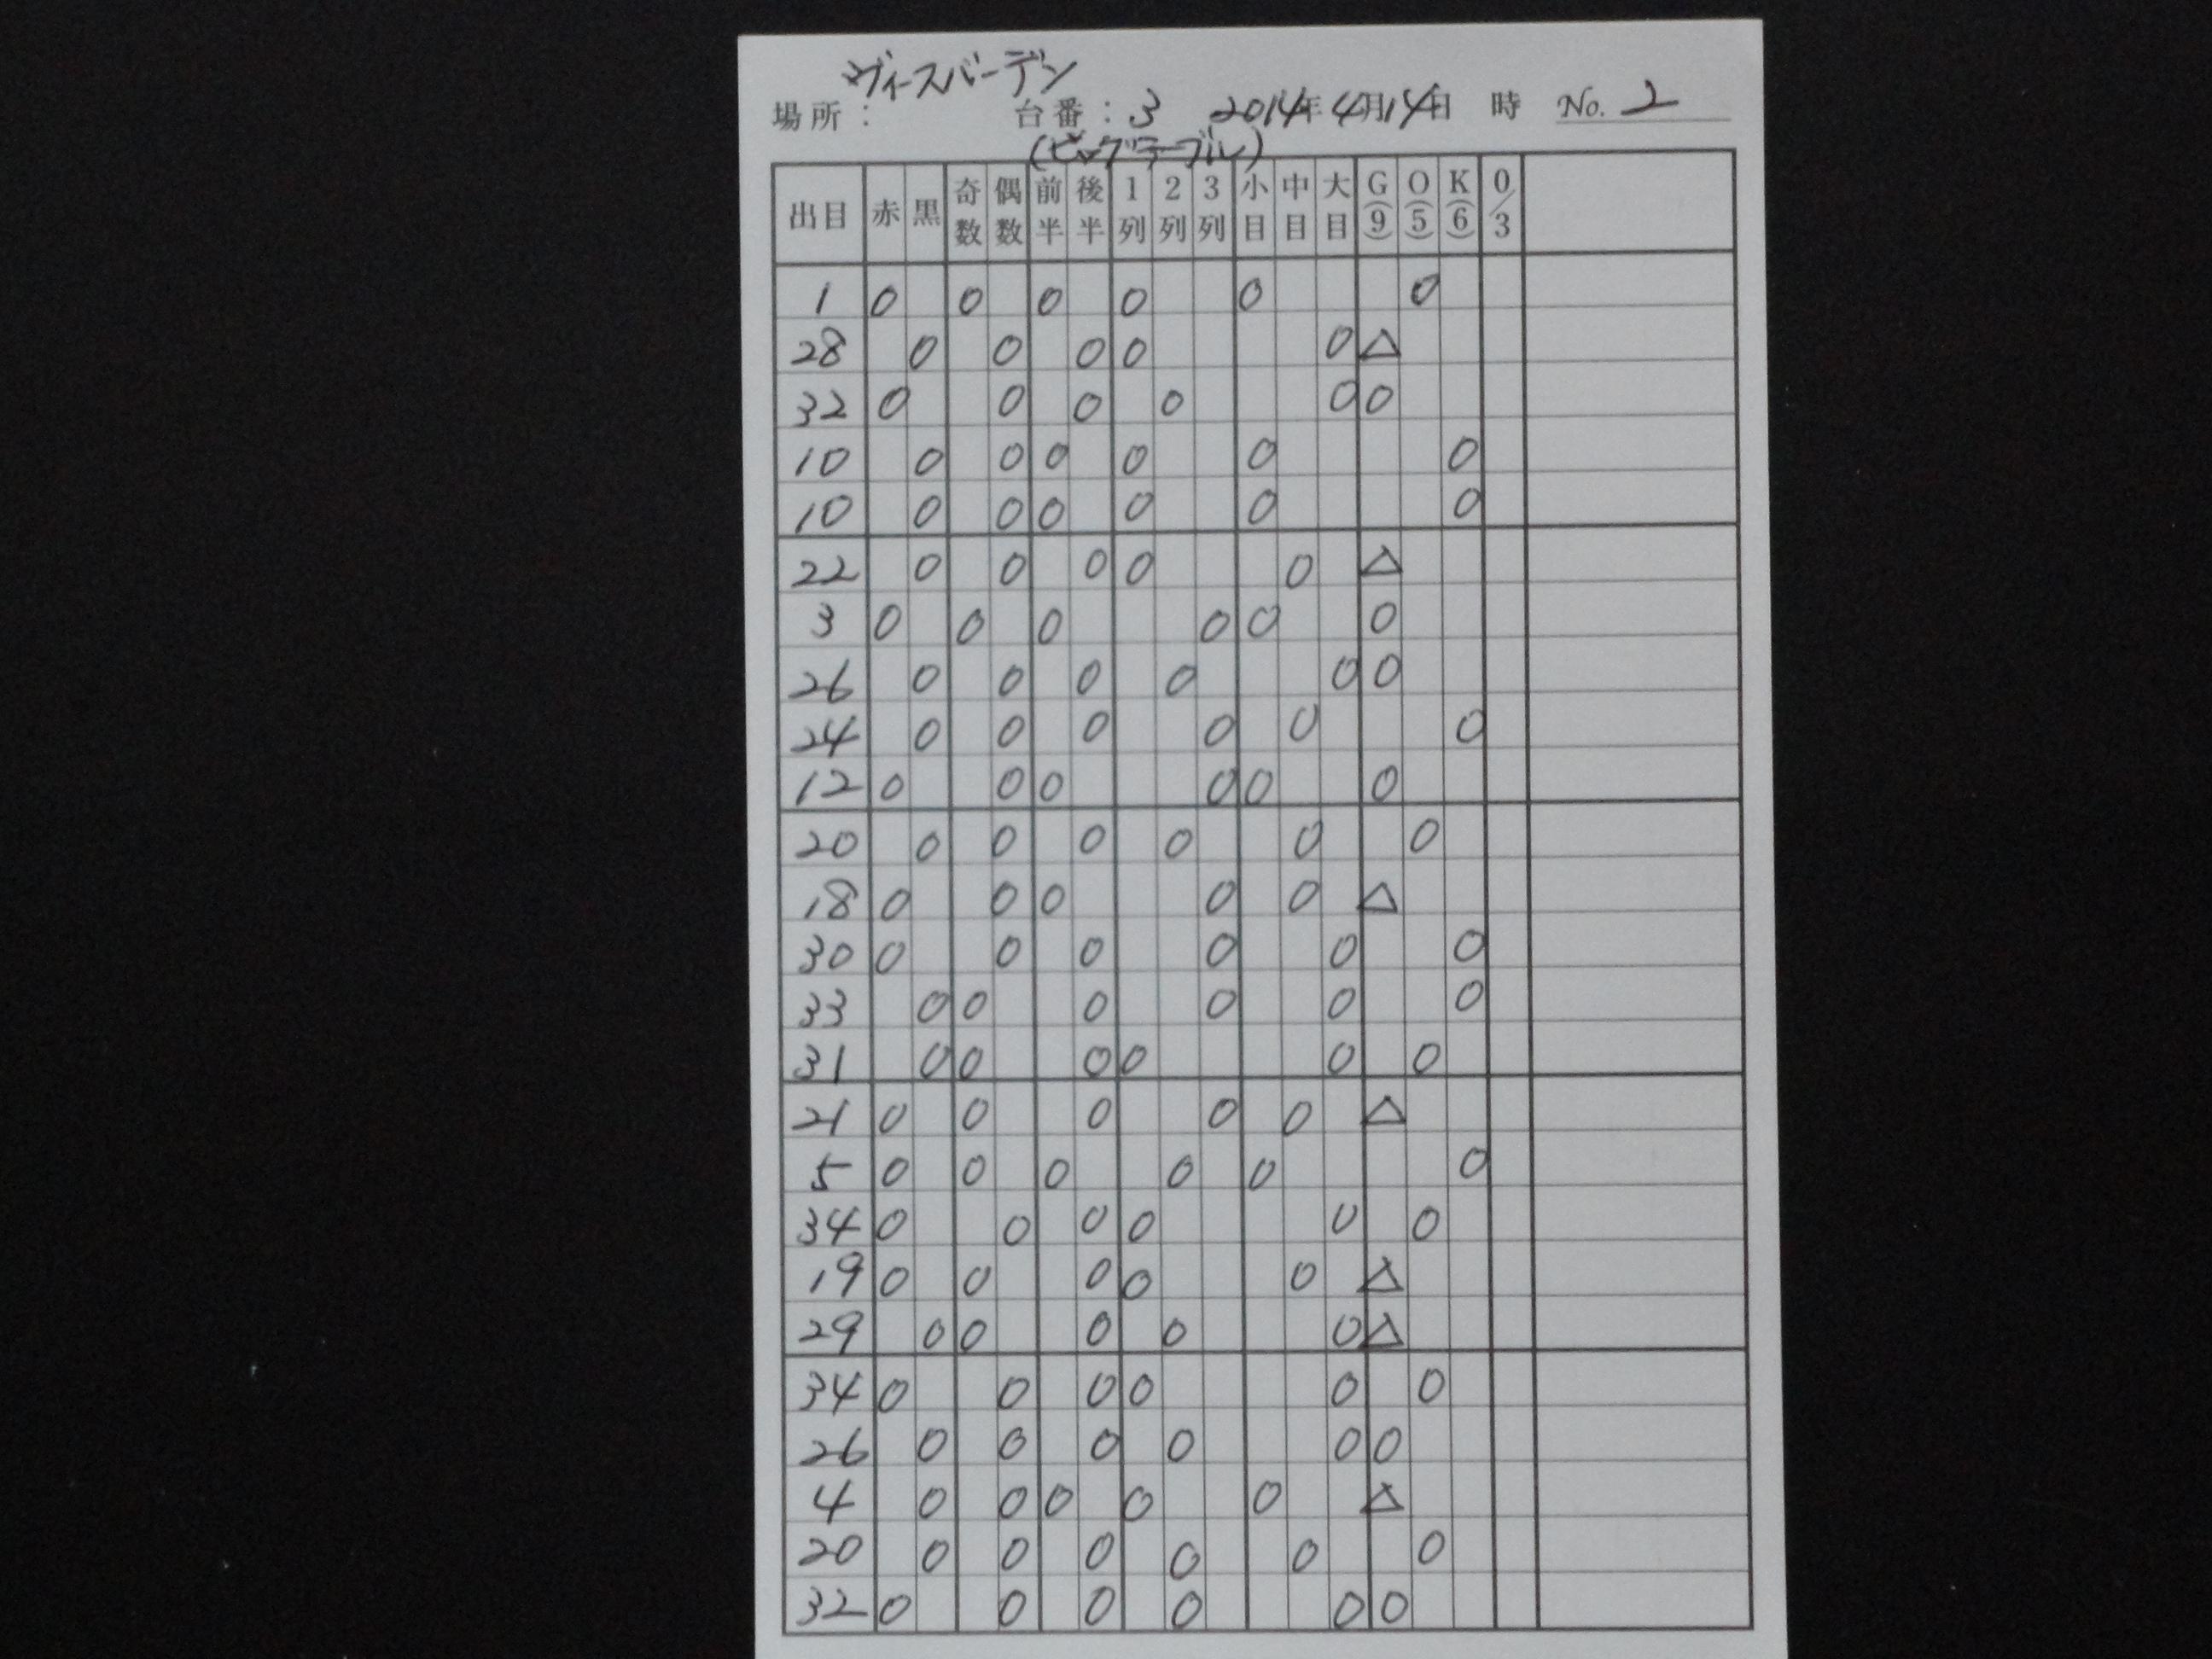 ヴィースバーデン
場所： 台番：3 2014年4月14日 時 No. 2
(ビッグテーブル)
出目 赤 黒 奇数 偶数 前半 後半 1列 2列 3列 小目 中目 大目 G(9) O(5) K(6) 0/3
1 0 0 0 0 0 0
28 0 0 0 0 0 △
32 0 0 0 0 0 0
10 0 0 0 0 0 0
10 0 0 0 0 0 0
22 0 0 0 0 0 △
3 0 0 0 0 0 0
26 0 0 0 0 0 0
24 0 0 0 0 0 0
12 0 0 0 0 0 0
20 0 0 0 0 0 0
18 0 0 0 0 0 △
30 0 0 0 0 0 0
33 0 0 0 0 0 0
31 0 0 0 0 0 0
21 0 0 0 0 0 △
5 0 0 0 0 0 0
34 0 0 0 0 0 0
19 0 0 0 0 0 △
29 0 0 0 0 0 △
34 0 0 0 0 0 0
26 0 0 0 0 0 0
4 0 0 0 0 0 △
20 0 0 0 0 0 0
32 0 0 0 0 0 0